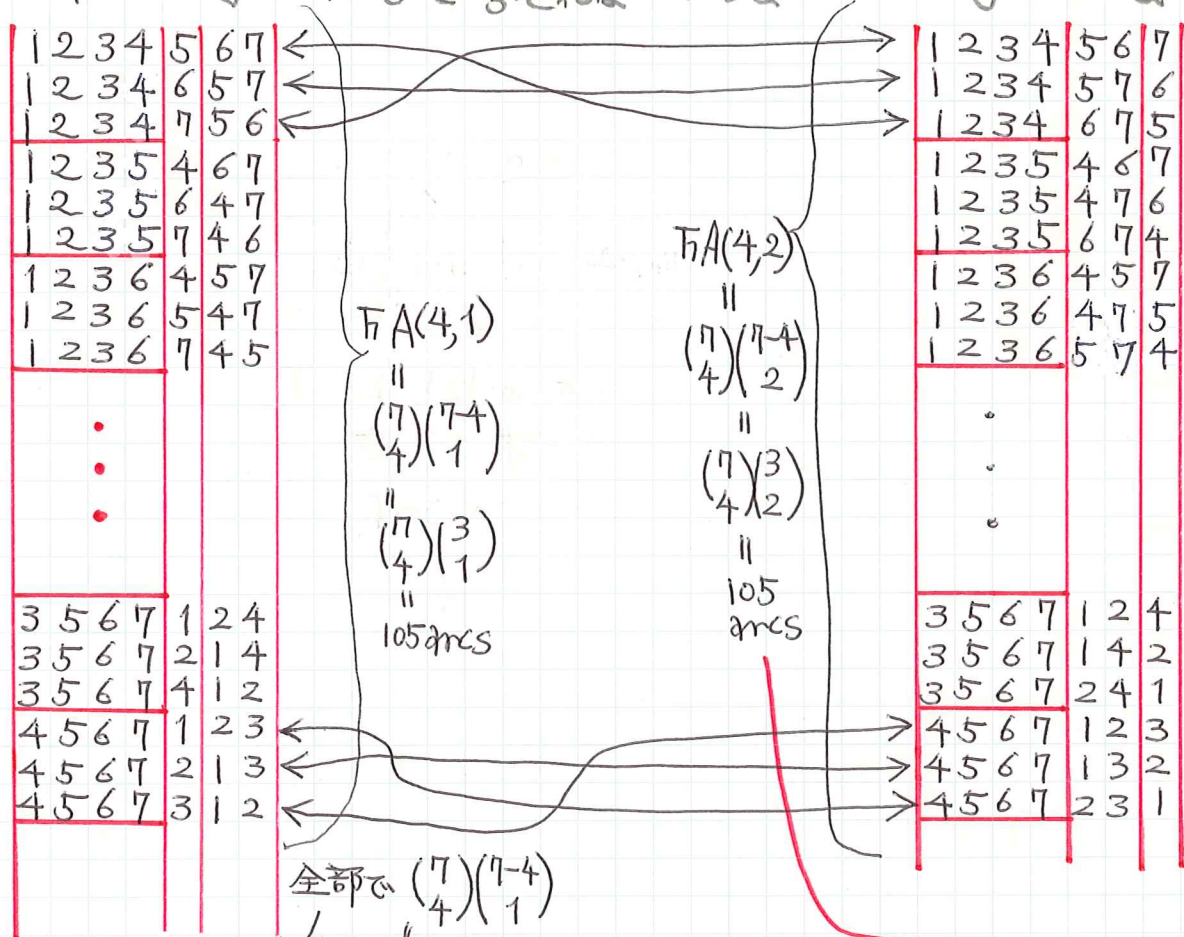 1 2 3 4 5 6 7
1 2 3 4 6 5 7
1 2 3 4 7 5 6
1 2 3 5 4 6 7
1 2 3 5 6 4 7
1 2 3 5 7 4 6
1 2 3 6 4 5 7
1 2 3 6 5 4 7
1 2 3 6 7 4 5
3 5 6 7 1 2 4
3 5 6 7 2 1 4
3 5 6 7 4 1 2
4 5 6 7 1 2 3
4 5 6 7 2 1 3
4 5 6 7 3 1 2
A(4,1)
=
(7 4)(7-4 1)
=
(7 4)(3 1)
=
105 arcs
全部で (7 4)(7-4 1)
=
A(4,2)
=
(7 4)(7-4 2)
=
(7 4)(3 2)
=
105
arcs
1 2 3 4 5 6 7
1 2 3 4 5 7 6
1 2 3 4 6 7 5
1 2 3 5 4 6 7
1 2 3 5 4 7 6
1 2 3 5 6 7 4
1 2 3 6 4 5 7
1 2 3 6 4 7 5
1 2 3 6 5 7 4
3 5 6 7 1 2 4
3 5 6 7 1 4 2
3 5 6 7 2 4 1
4 5 6 7 1 2 3
4 5 6 7 1 3 2
4 5 6 7 2 3 1